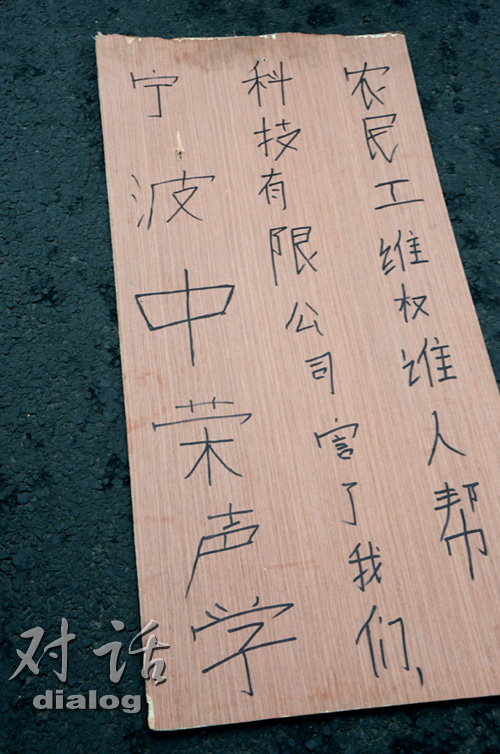 宁波中荣声学
科技有限公司害了我们,
农民工维权谁人帮
对话
dialog